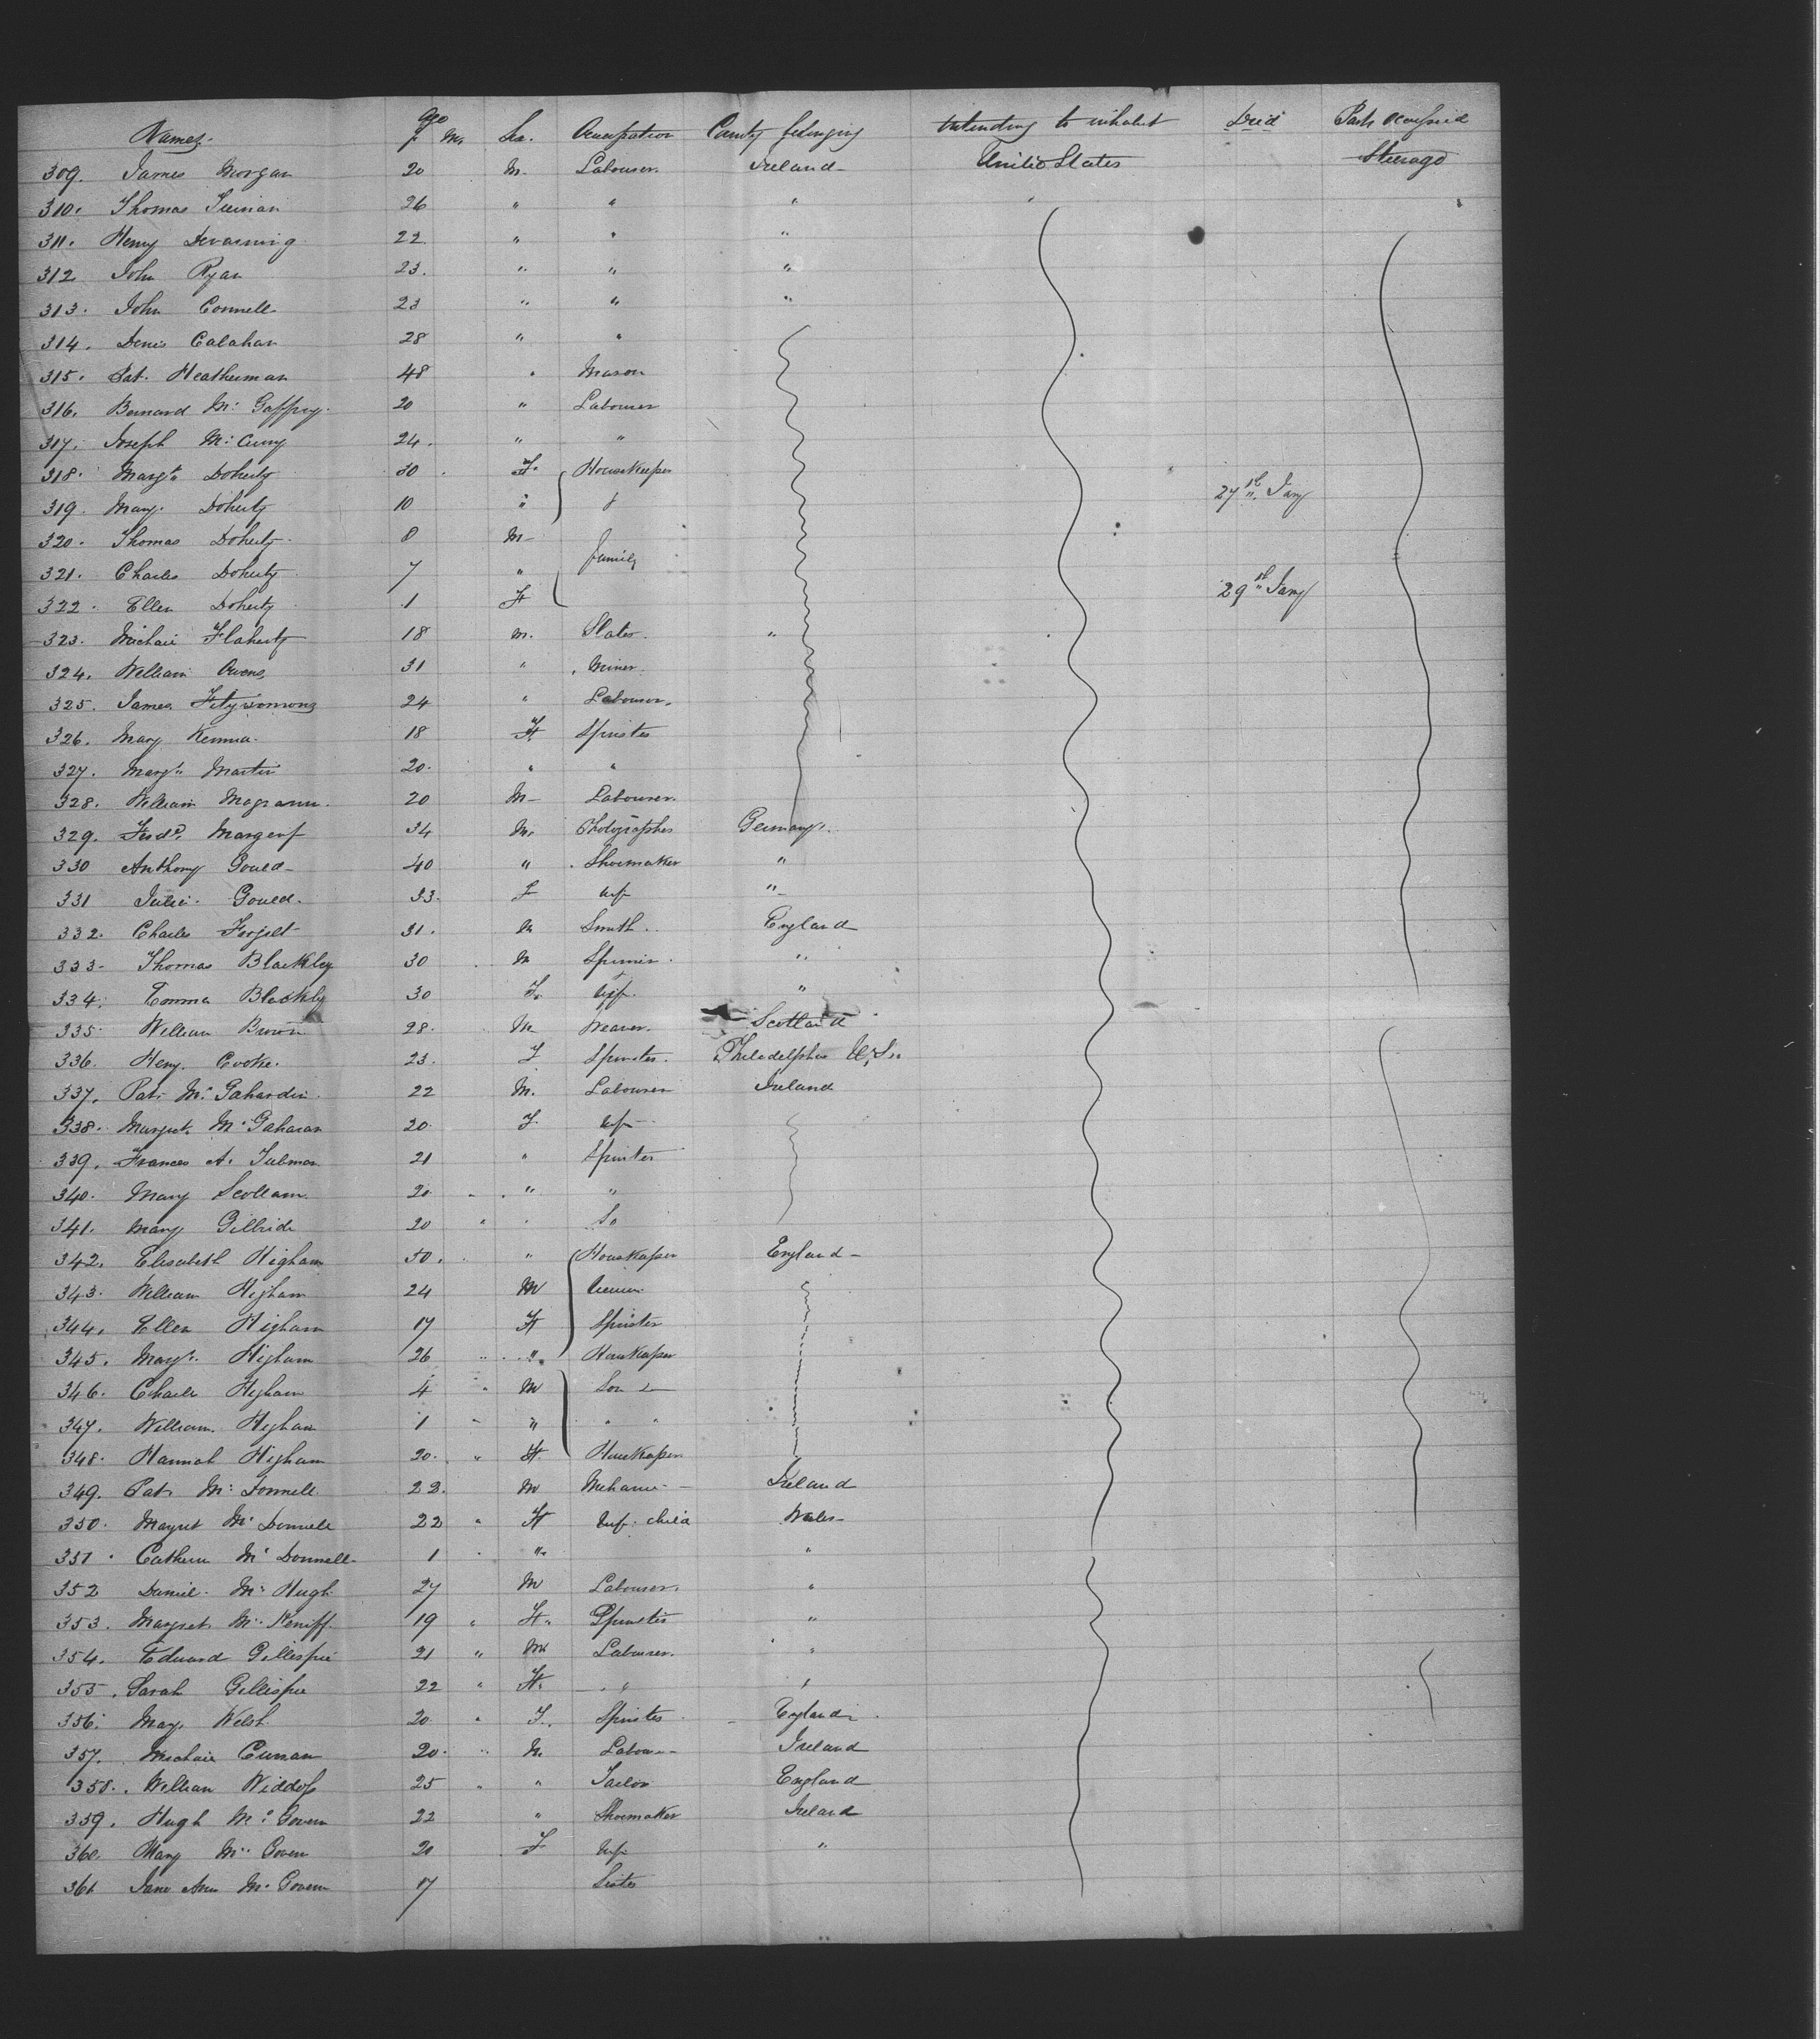 Names. Age y Ms. Sex. Occupation County belonging Intending to inhabit Died Part occupied
309. James Morgan 20 M. Labourer. Ireland United States Steerage
310. Thomas 26 " " "
311. Henry 22 " " "
312 John Ryan 23. " " "
313. John Connell 23 " " "
314. Denis Calahan 28 " "
315. Pat. Heatherman 48 " Mason
316. Bernard Mc Gaffrey. 20 " Labourer
317. Joseph Mc Curry 24. " "
318. Margt Doherty 30 F. Housekeeper
319. Mary. Doherty 10 " & 27th Jany
320. Thomas Doherty 8 M
321. Charles Doherty 7 " family
322. Ellen Doherty 1 F 29th Jany
323. Michael Flaherty 18 M. Slater. "
324. William Owens 31 " Miner.
325. James Fitzsimons 24 " Labourer.
326. Mary Kenna. 18 F. Spinster
327. Margt Martin 20. " "
328. William Magrann. 20 M Labourer.
329. Ferdd. 34 M. Photographer Germany.
330 Anthony Gould 40 " Shoemaker "
331 Julia. Gould. 33. F wife "
332. Charles 31. M Smith England
333. Thomas Blackley 30 M Spinner. "
334. Emma Blackley 30 F. Wife. "
335. William Brown 28. M Weaver. Scotland
336. Heny. Cooke. 23. F Spinster. Philadelphia U.S.
337. Pat. Mc 22 M. Labourer Ireland
338. Margret. Mc Gaharan 20. F. wife
339. Frances A. 21 " Spinster
340. Mary Scollam. 20. " "
341. Mary Gilbride 20 Do
342. Elisabeth Higham 50. " Housekeeper England
343. William Higham 24 M
344. Ellen Higham 17 F Spinster
345. Margt. Higham 26 " Housekeeper
346. Charles Higham 4 M Son
347. William. Higham 1 " " "
348. Hannah Higham 20. F. Housekeeper
349. Pat. Mc Donnell. 22. M Mechanic Ireland
350. Margret Mc Donnell 22 F Wife child Wales
351. Cathern Mc Donnell 1 " "
352 Daniel. Mc Hugh. 27 M Labourer. "
353. Margret. Mc Keniff. 19 F. Spinster "
354. Edward Gillespie 21 " M Labourer. "
355. Sarah Gillespie 22 " F. " "
356. Mary. Welsh. 20. F. Spinster England
357. Michael Curran 20. M. Labour Ireland
358. William Widdop 25 " Tailor England
359. Hugh Mc Govern 22 " Shoemaker Ireland
360. Mary Mc Govern 20 F Wife "
361 Jane Ann Mc Govern 17 Sister